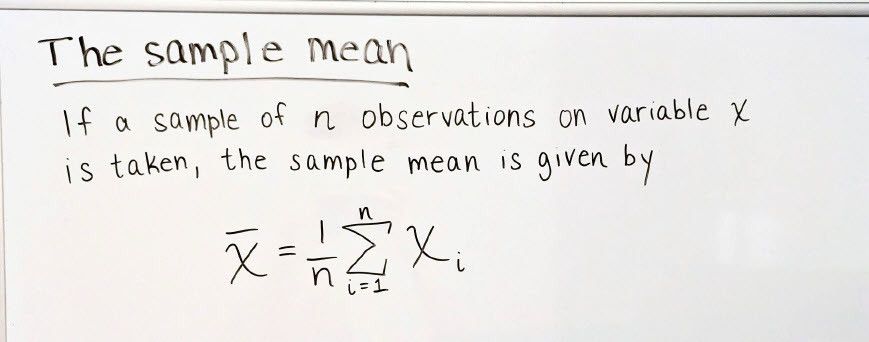 The sample mean
If a sample of n observations on variable x
is taken, the sample mean is given by
x̄ = 1/n ∑_{i=1}^{n} x_i